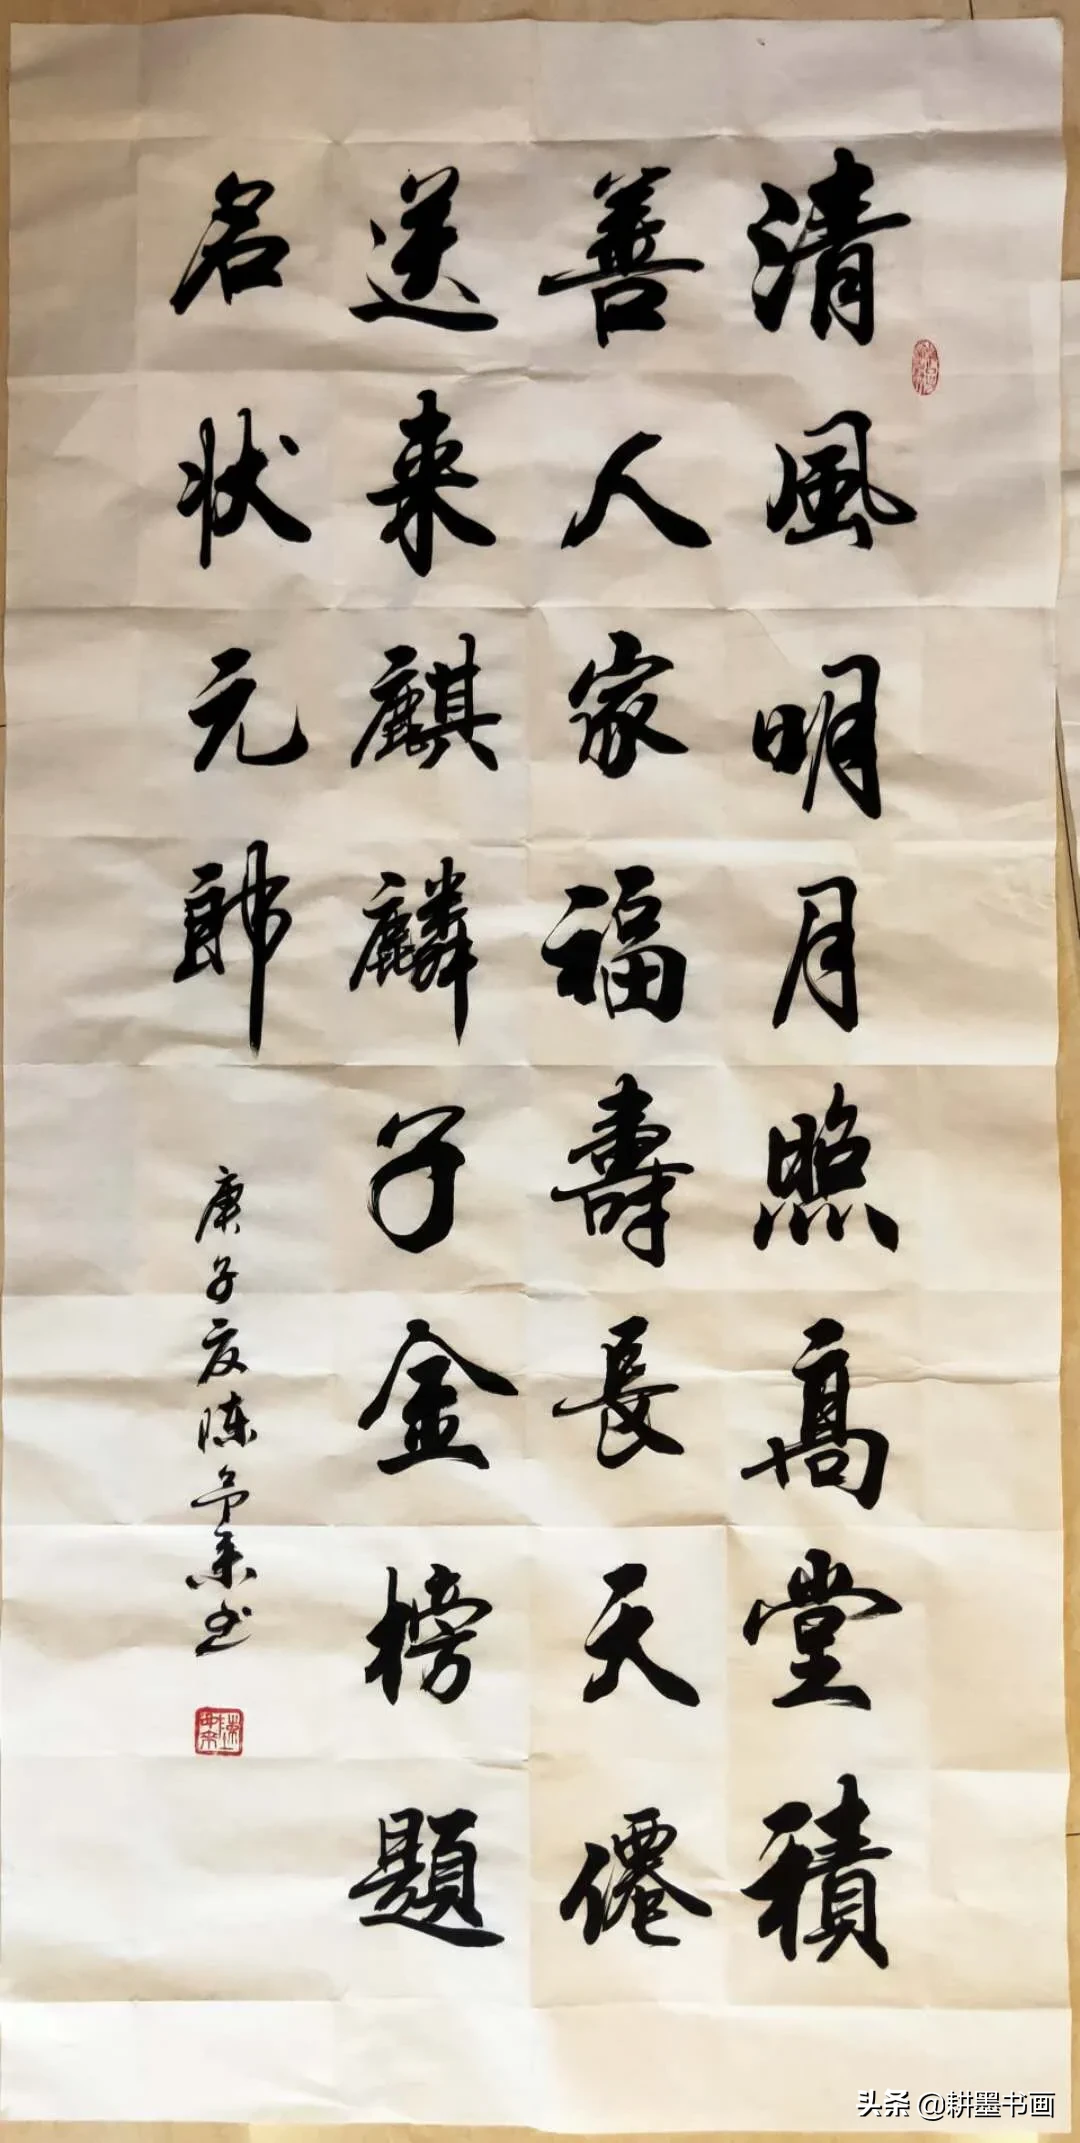 清風明月照高堂積
善人家福壽長天僊
送来麒麟子金榜題
名状元郎
庚子夏陈予秉书
头条 @耕墨书画